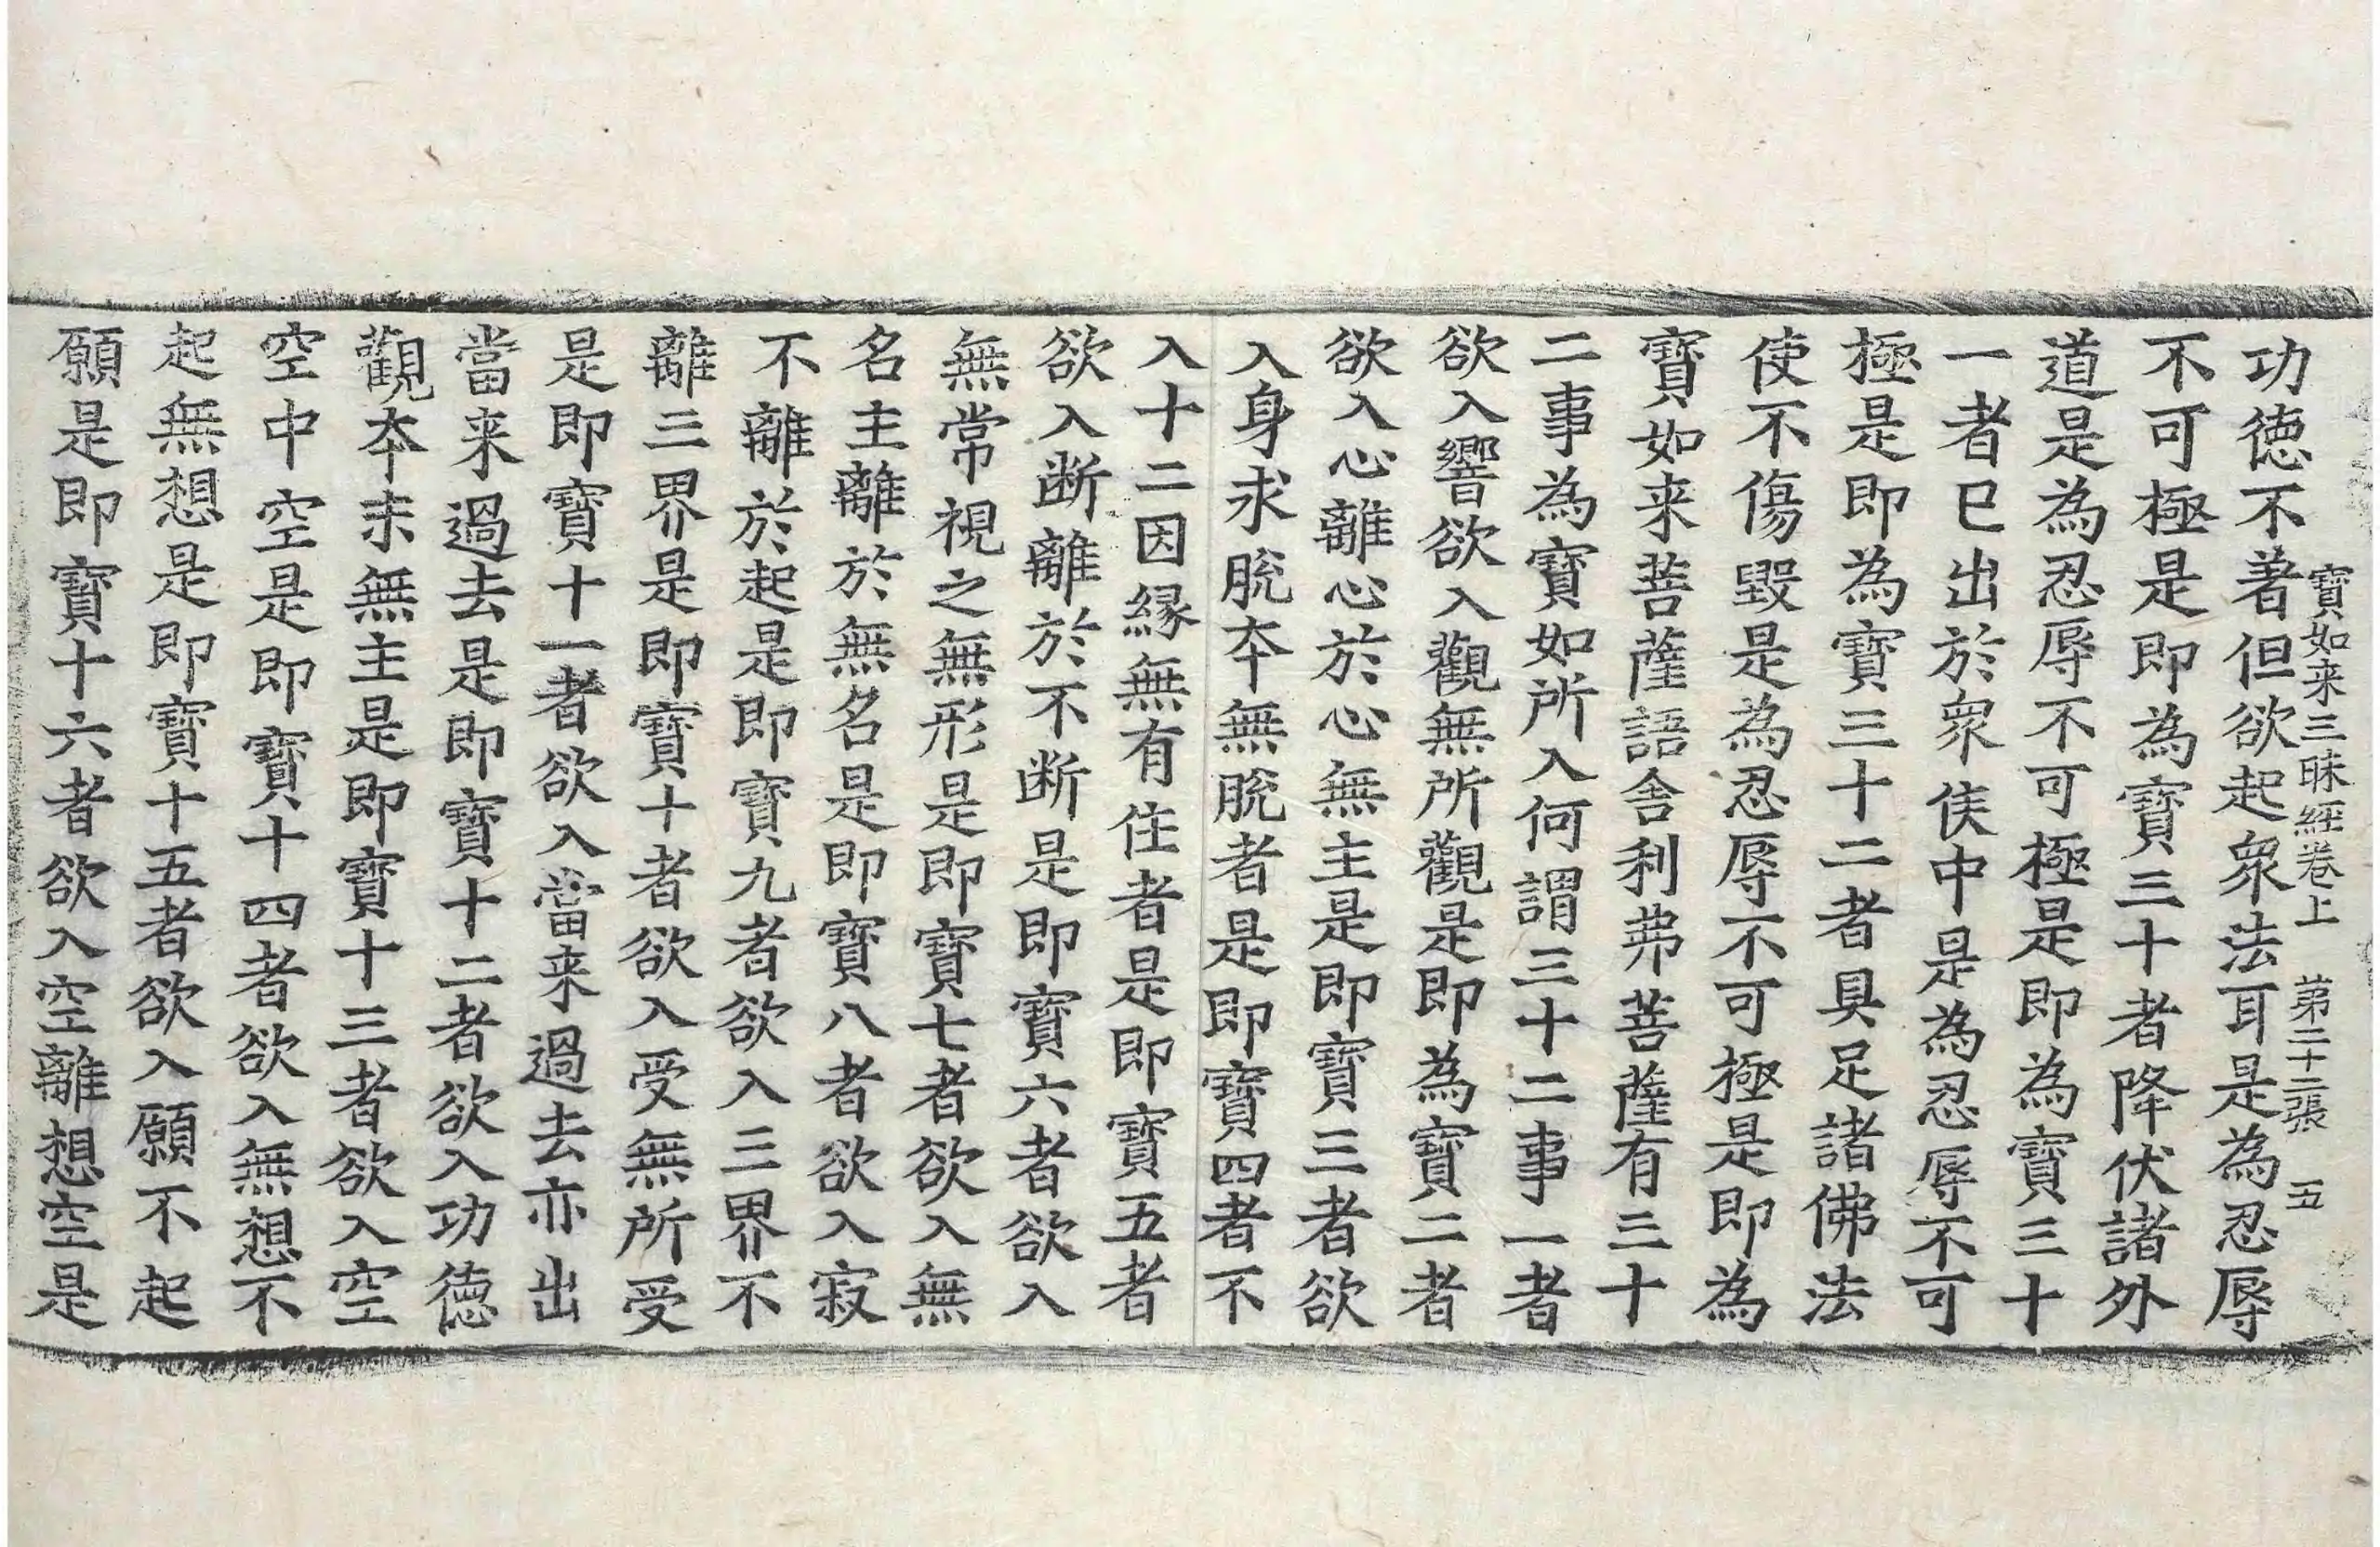 寶如来三昧經卷上　第二十二張　五
功德不著但欲起衆法耳是為忍辱
不可極是即為寶三十者降伏諸外
道是為忍辱不可極是即為寶三十
一者已出於衆俟中是為忍辱不可
極是即為寶三十二者具足諸佛法
使不傷毀是為忍辱不可極是即為
寶如来菩薩語舎利弗菩薩有三十
二事為寶如所入何謂三十二事一者
欲入響欲入觀無所觀是即為寶二者
欲入心離心於心無主是即寶三者欲
入身求脫夲無脫者是即寶四者不
入十二因縁無有住者是即寶五者
欲入断離於不断是即寶六者欲入
無常視之無形是即寶七者欲入無
名主離於無名是即寶八者欲入寂
不離於起是即寶九者欲入三界不
離三界是即寶十者欲入受無所受
是即寶十一者欲入當来過去亦出
當来過去是即寶十二者欲入功德
觀夲末無主是即寶十三者欲入空
空中空是即寶十四者欲入無想不
起無想是即寶十五者欲入願不起
願是即寶十六者欲入空離想空是